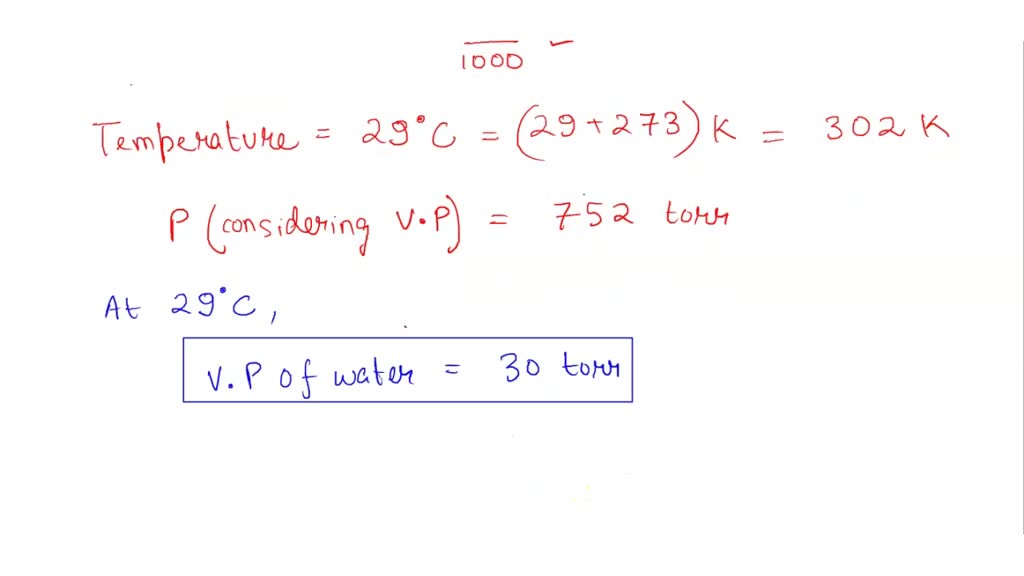 1000 ✓
Temperature = 29°C = (29 + 273) K = 302 K
P (considering V.P) = 752 torr
At 29°C,
V.P of water = 30 torr